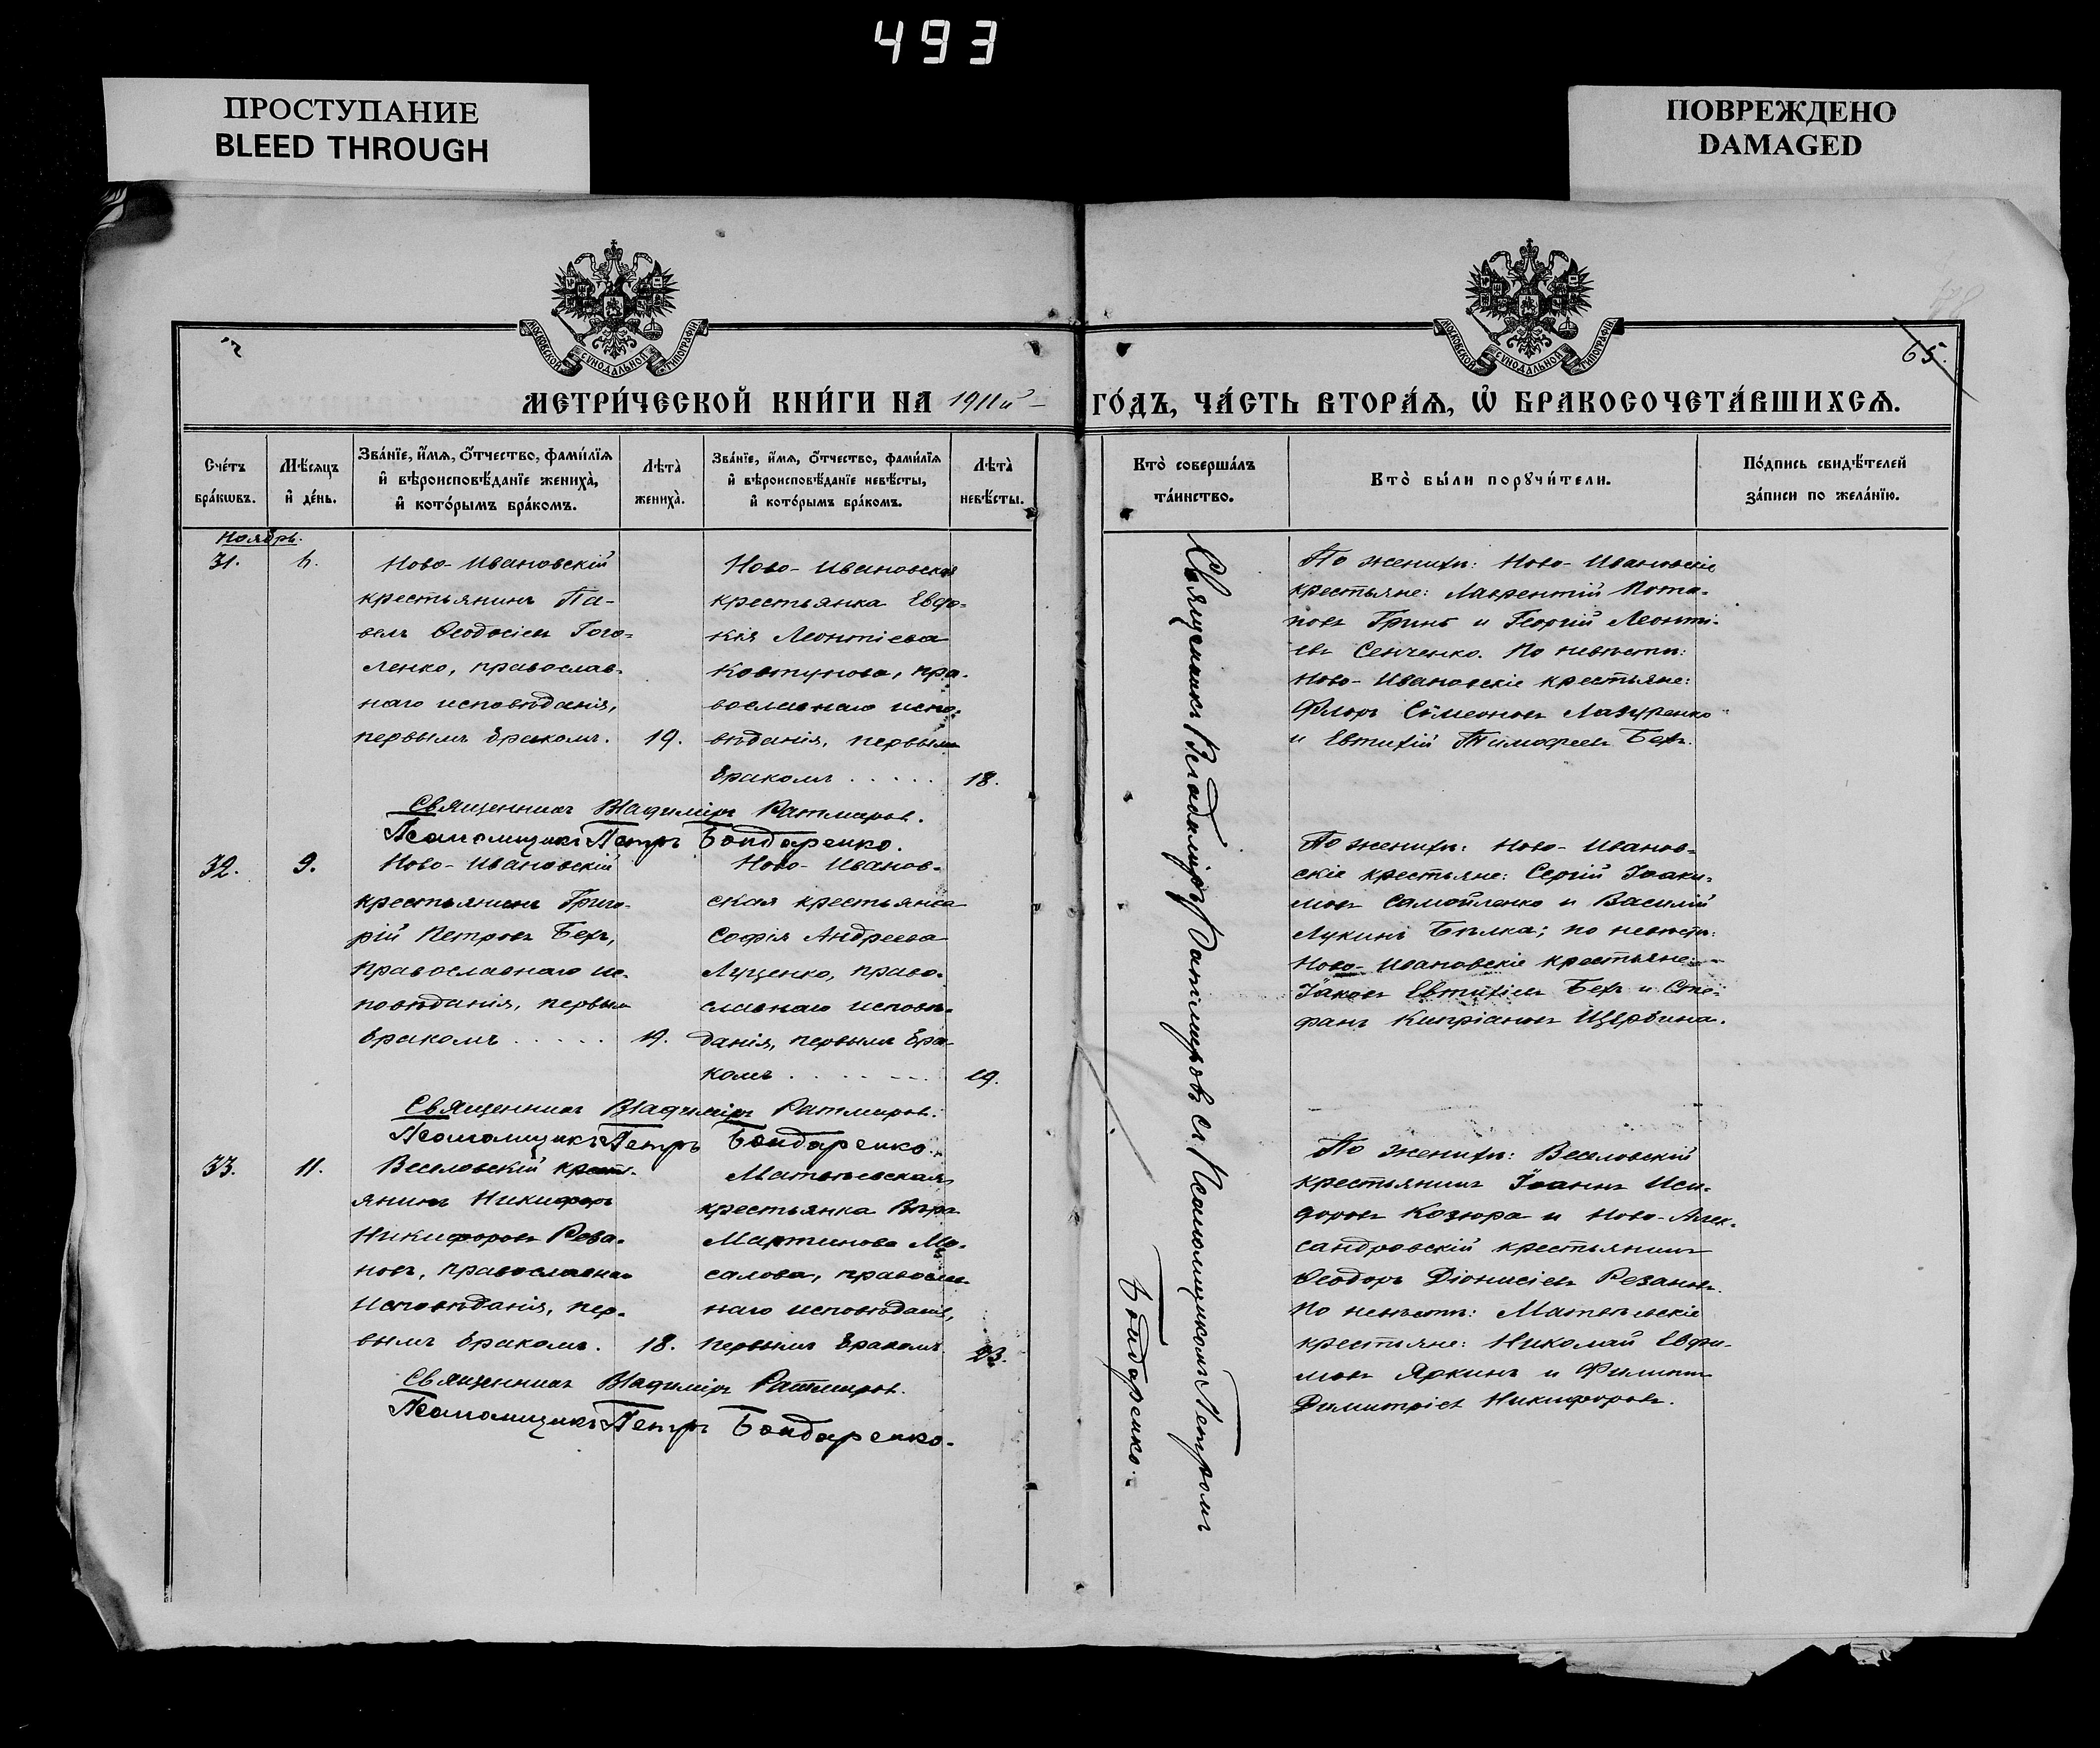 493
ПРОСТУПАНИЕ
BLEED THROUGH
ПОВРЕЖДЕНО
DAMAGED
МОСКОВСКОЙ СѴНОДАЛЬНОЙ ТИПОГРАФІИ
МОСКОВСКОЙ СѴНОДАЛЬНОЙ ТИПОГРАФІИ
65.
МЕТРИ́ЧЕСКОЙ КНИ́ГИ НА 1911й
ГО́ДЪ, ЧА́СТЬ ВТОРА́Ѧ, Ѡ҆ БРАКОСОЧЕТА́ВШИХСѦ.
Сче́тъ
бра́кѡвъ.
Мѣ́сяцъ
и҆ де́нь.
Зва́нїе, и҆́мѧ, ѻ҆́тчество, фами́лїѧ
и҆ вѣроисповѣ́данїе жениха̀,
и҆ кото́рымъ бра́комъ.
Лѣта̀
жениха̀.
Зва́нїе, и҆́мѧ, ѻ҆́тчество, фами́лїѧ
и҆ вѣроисповѣ́данїе невѣ́сты,
и҆ кото́рымъ бра́комъ.
Лѣта̀
невѣ́сты.
Кто̀ соверша́лъ
та́инство.
Кто̀ бы́ли порꙋчи́тели.
По́дпись свидѣ́телей
за́писи по жела́нїю.
Ноябрь.
31.
6.
Ново-Ивановскій
крестьянинъ Па-
велъ Ѳеодосіевъ Гого-
ленко, православ-
наго исповѣданія,
первымъ бракомъ.
19.
Ново-Ивановская
крестьянка Евдо-
кія Леонтіева
Ковтунова, пра-
вославнаго испо-
вѣданія, первымъ
бракомъ . . . . .
18.
По женихѣ: Ново-Ивановскіе
крестьяне: Лаврентій Пота-
повъ Гринь и Георгій Леонті-
евъ Сенченко. По невѣстѣ:
Ново-Ивановскіе крестьяне:
Флоръ Сѵмеоновъ Лазуренко
и Евтихій Тимофеевъ Бехъ.
Священникъ Владиміръ Ратмировъ.
Псаломщикъ Петръ Бондаренко.
32.
9.
Ново-Ивановскій
крестьянинъ Григо-
рій Петровъ Бехъ,
православнаго ис-
повѣданія, первымъ
бракомъ . . . . .
19.
Ново-Иванов-
ская крестьянка
Софія Андреева
Луценко, право-
славнаго исповѣ-
данія, первымъ бра-
комъ . . . . . .
19.
По женихѣ: Ново-Иванов-
скіе крестьяне: Сергій Іоаки-
мовъ Самойленко и Василій
Лукинъ Бѣлка; по невѣстѣ:
Ново-Ивановскіе крестьяне:
Іаковъ Евтихіевъ Бехъ и Сте-
фанъ Кипріановъ Щербина.
Священникъ Владиміръ Ратмировъ.
Псаломщикъ Петръ Бондаренко.
33.
11.
Веселовскій кресть-
янинъ Никифоръ
Никифоровъ Реза-
новъ, православнаго
исповѣданія, пер-
вымъ бракомъ.
18.
Матвѣевская
крестьянка Вѣра
Мартинова Мо-
салова, православ-
наго исповѣданія,
первымъ бракомъ.
23.
По женихѣ: Веселовскій
крестьянинъ Іоаннъ Иси-
доровъ Козюра и Ново-Алек-
сандровскій крестьянинъ
Ѳеодоръ Діонисіевъ Резановъ.
По невѣстѣ: Матвѣевскіе
крестьяне: Николай Евфи-
мовъ Яркинъ и Филиппъ
Димитріевъ Никифоровъ.
Священникъ Владиміръ Ратмировъ.
Псаломщикъ Петръ Бондаренко.
Священникъ Владиміръ Ратмировъ съ Псаломщикомъ Петромъ
Бондаренко.